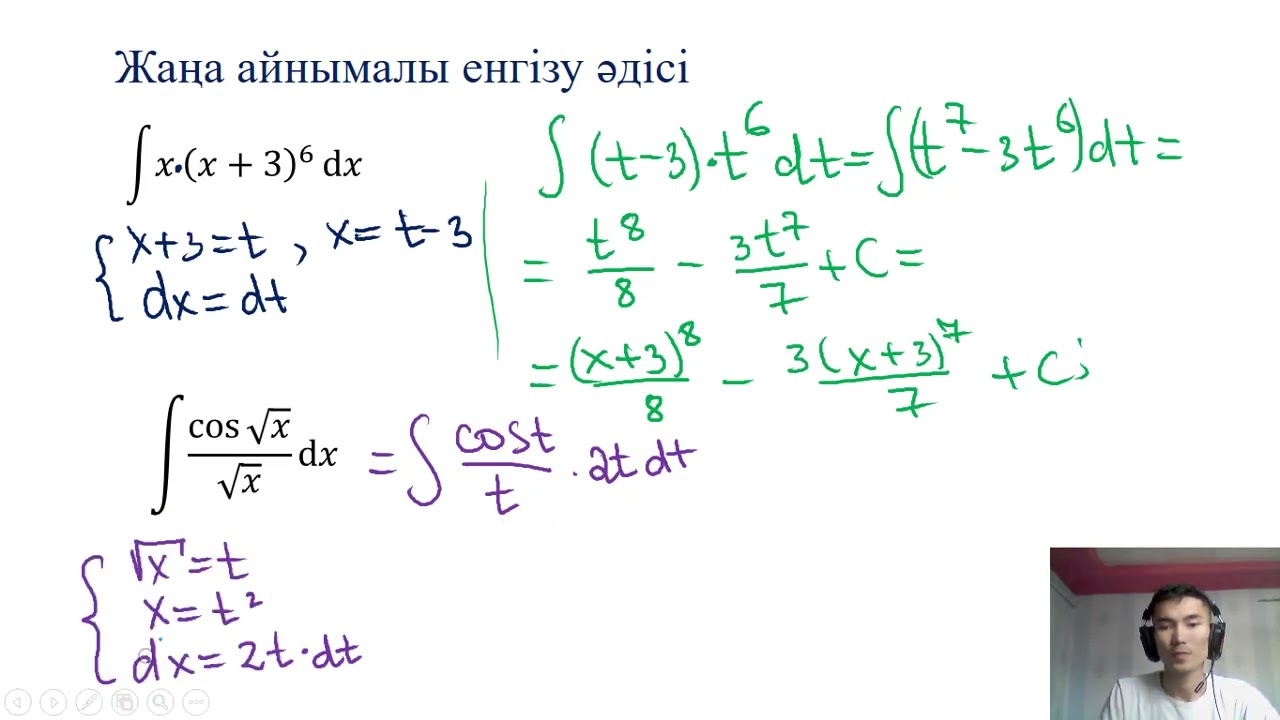 Жаңа айнымалы енгізу әдісі
∫ x·(x + 3)⁶ dx
{ x+3=t , x= t-3
dx= dt
∫ (t-3)·t⁶ dt = ∫(t⁷ - 3t⁶)dt =
= t⁸/8 - 3t⁷/7 + C =
= (x+3)⁸/8 - 3(x+3)⁷/7 + C;
∫ cos √x/√x dx = ∫ cost/t · 2t dt
{ √x = t
x = t²
dx = 2t·dt